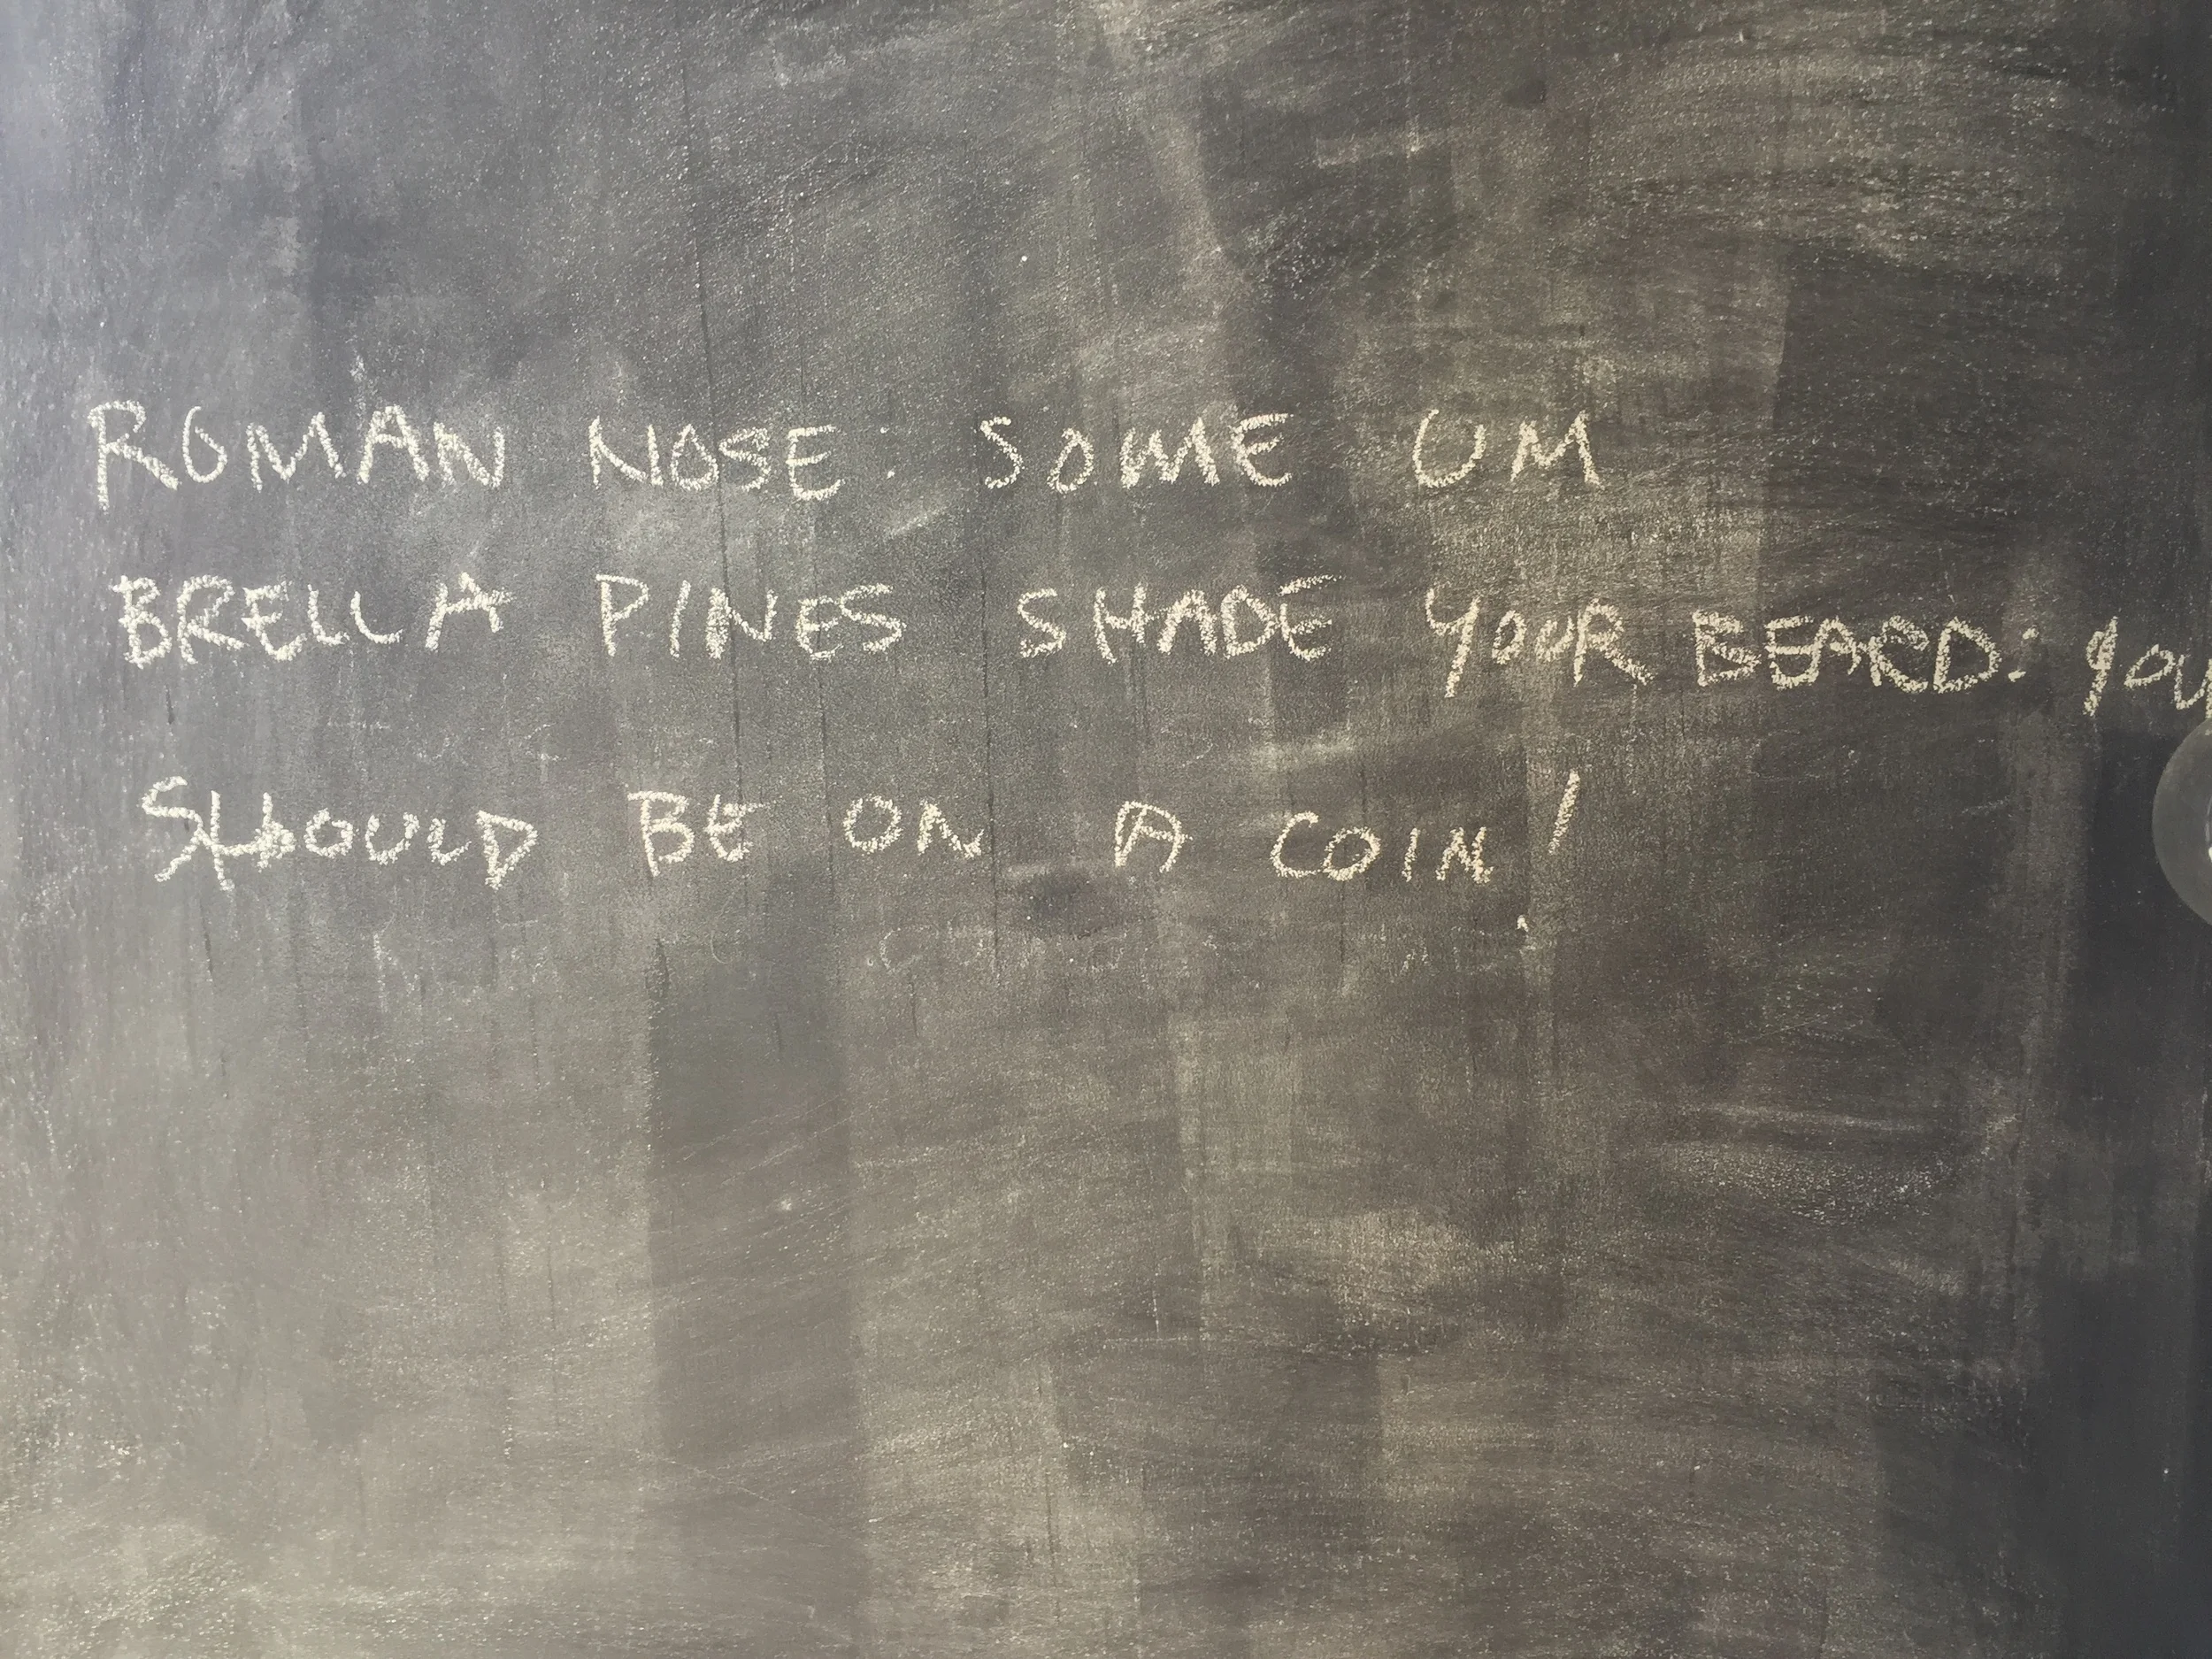 ROMAN NOSE: SOME UM
BRELLA PINES SHADE YOUR BEARD: YOU
SHOULD BE ON A COIN!